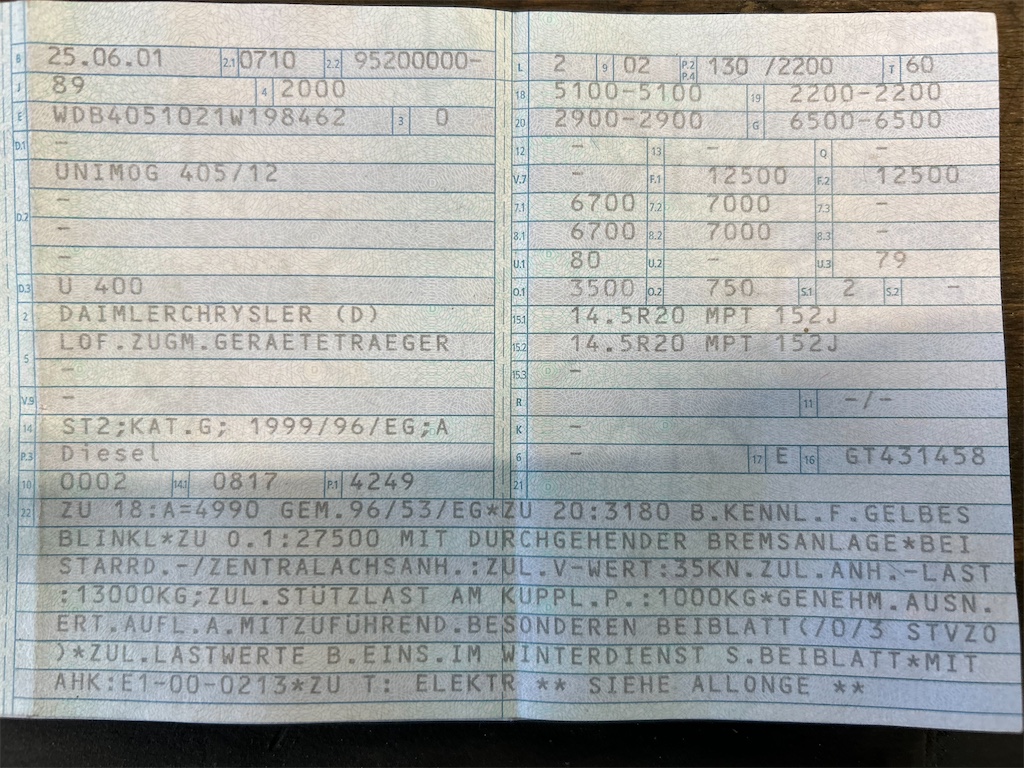 B 25.06.01 2.1 0710 2.2 95200000-
J 89 4 2000
E WDB4051021W198462 3 0
D.1 -
UNIMOG 405/12
D.2 -
-
-
D.3 U 400
2 DAIMLERCHRYSLER (D)
5 LOF.ZUGM.GERAETETRAEGER
-
V.9 -
14 ST2;KAT.G; 1999/96/EG;A
P.3 Diesel
10 0002 14.1 0817 P.1 4249
L 2 9 02 P.2 P.4 130 /2200 T 60
18 5100-5100 19 2200-2200
20 2900-2900 G 6500-6500
12 - 13 - Q -
V.7 - F.1 12500 F.2 12500
7.1 6700 7.2 7000 7.3 -
8.1 6700 8.2 7000 8.3 -
U.1 80 U.2 - U.3 79
O.1 3500 O.2 750 S.1 2 S.2 -
15.1 14.5R20 MPT 152J
15.2 14.5R20 MPT 152J
15.3 -
R 11 -/-
K -
6 - 17 E 16 GT431458
21
22 ZU 18:A=4990 GEM.96/53/EG*ZU 20:3180 B.KENNL.F.GELBES
BLINKL*ZU 0.1:27500 MIT DURCHGEHENDER BREMSANLAGE*BEI
STARRD.-/ZENTRALACHSANH.:ZUL.V-WERT:35KN.ZUL.ANH.-LAST
:13000KG;ZUL.STÜTZLAST AM KUPPL.P.:1000KG*GENEHM.AUSN.
ERT.AUFL.A.MITZUFÜHREND.BESONDEREN BEIBLATT(/0/3 STVZO
)*ZUL.LASTWERTE B.EINS.IM WINTERDIENST S.BEIBLATT*MIT
AHK:E1-00-0213*ZU T: ELEKTR ** SIEHE ALLONGE **